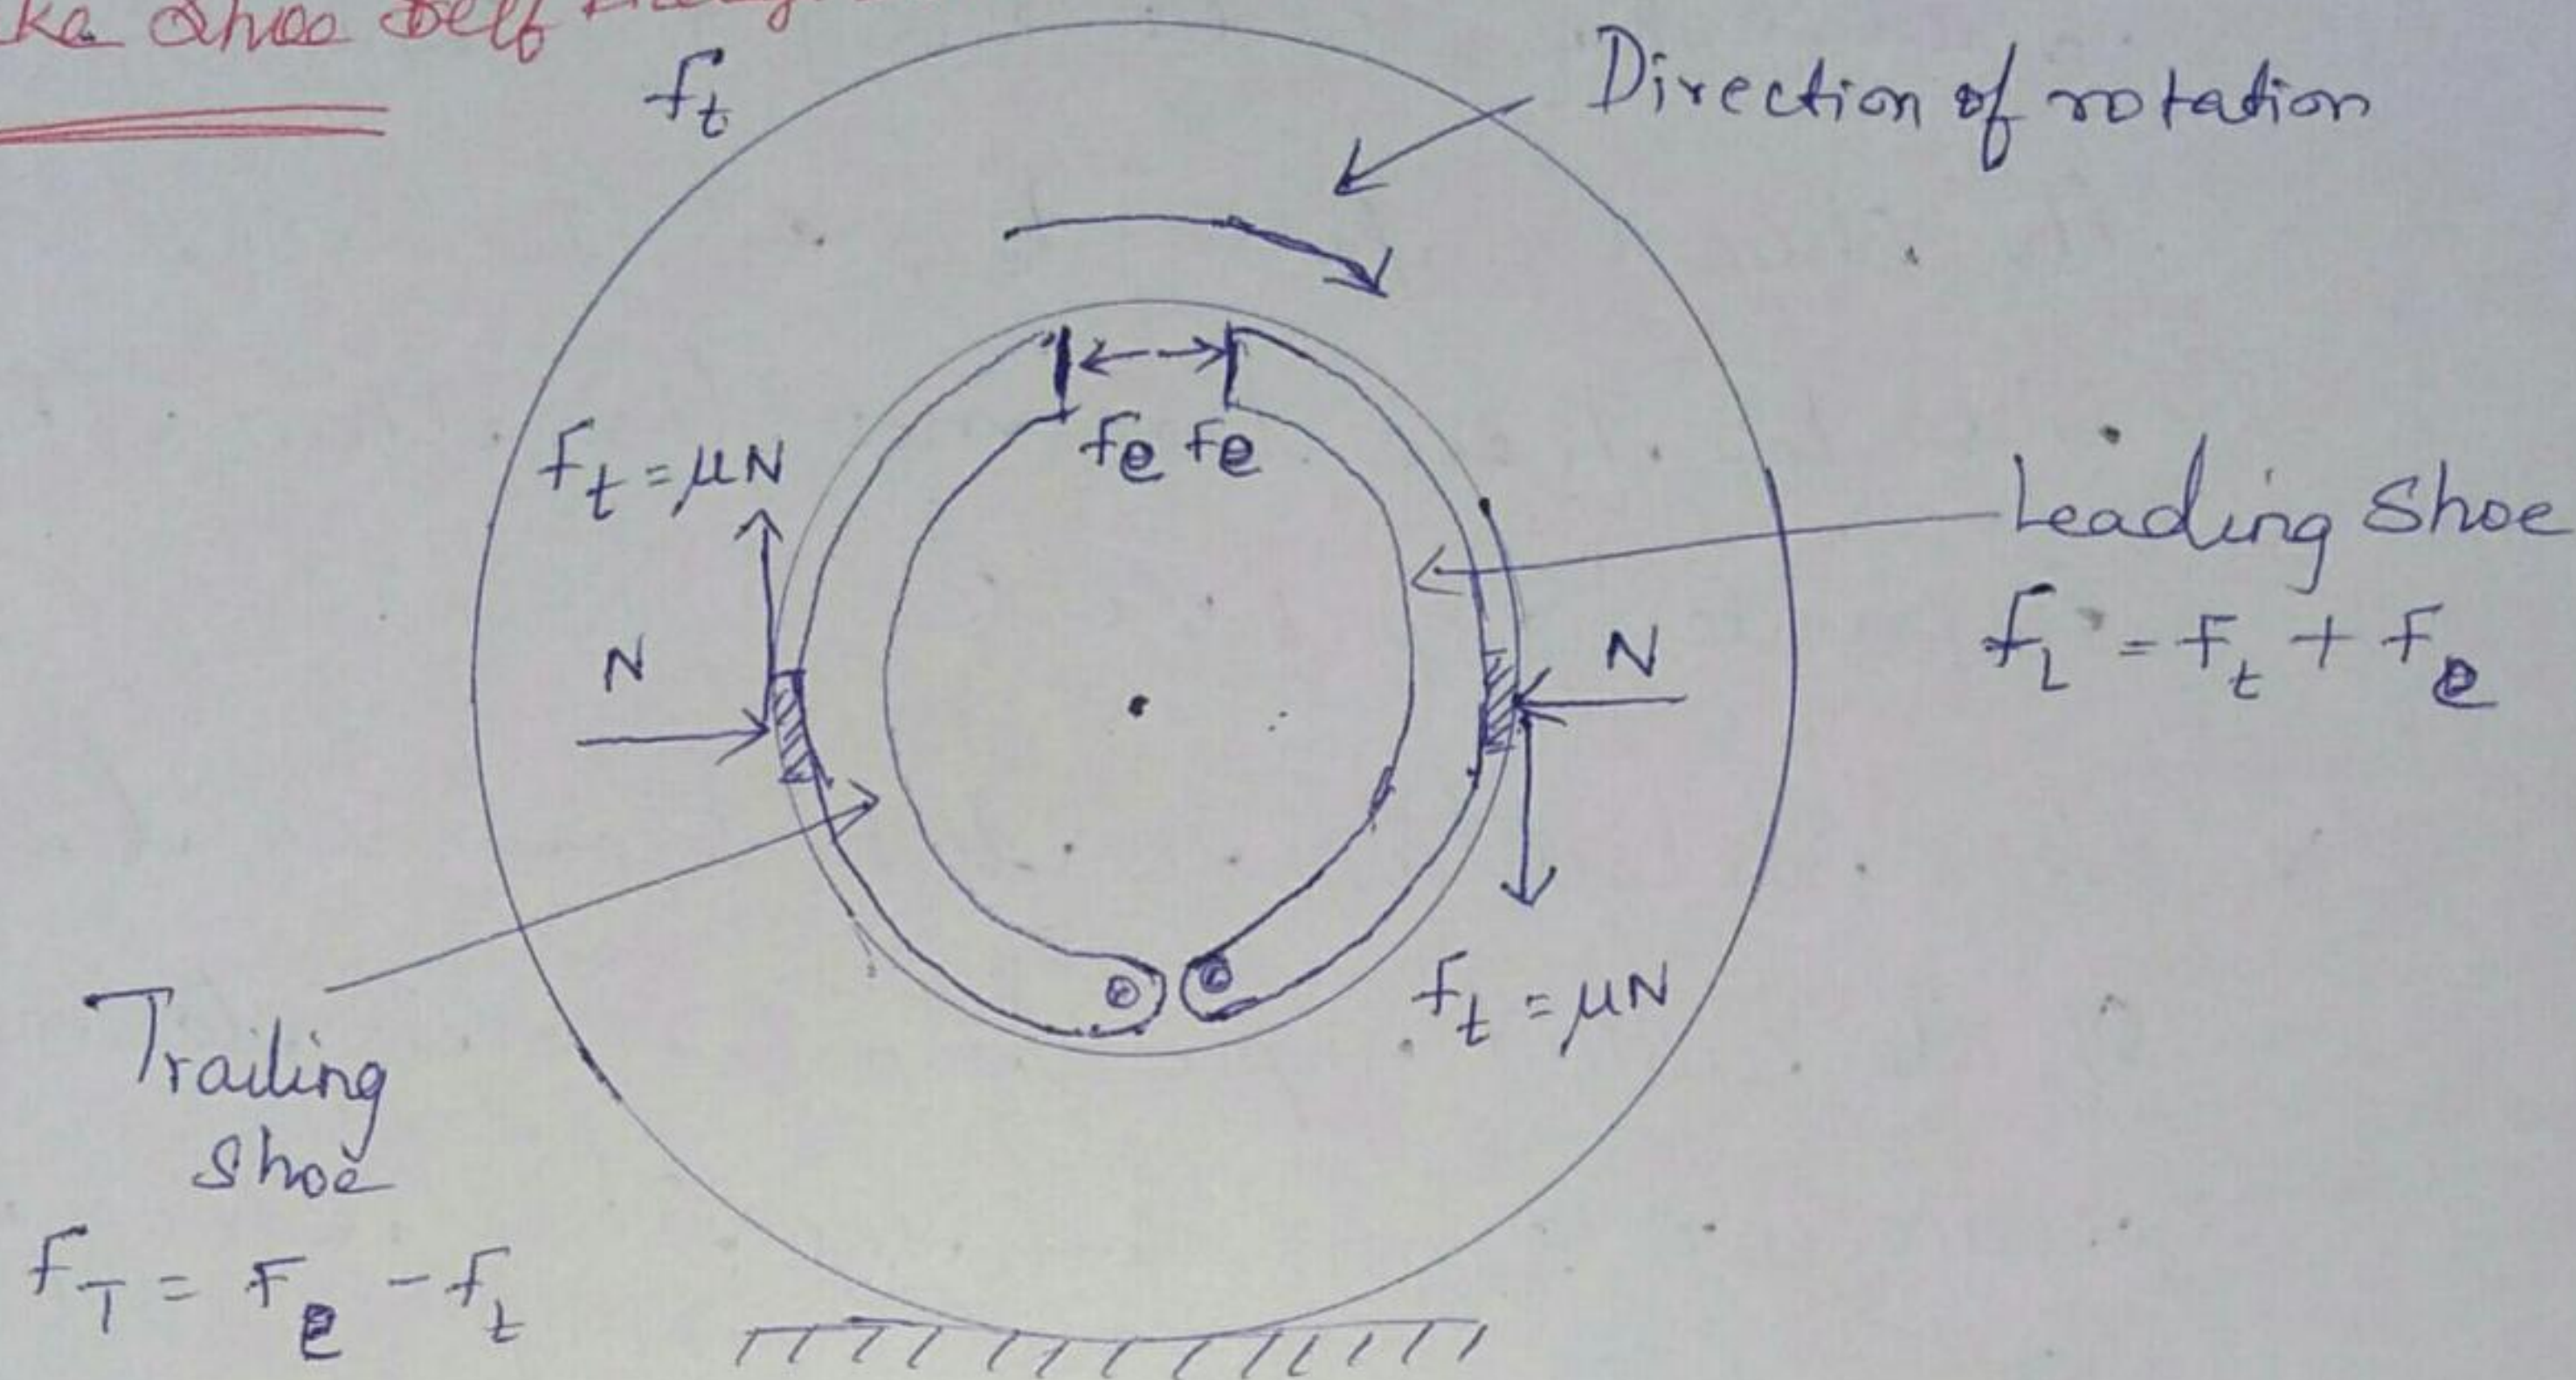 Shoe Self
ft
Direction of rotation
Ft = μN
fe fe
Leading Shoe
fL = Ft + Fe
N
N
ft = μN
Trailing
Shoe
fT = Fe - ft